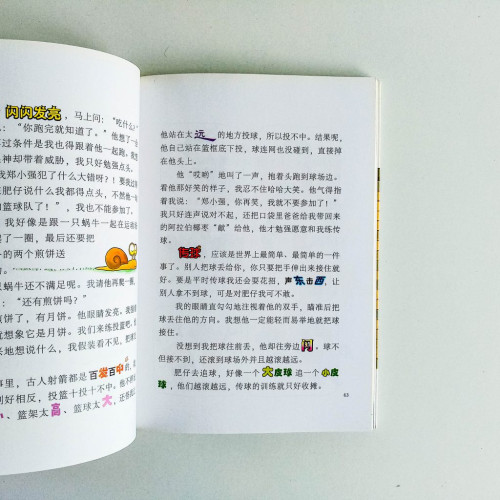 闪闪发亮，马上问："吃什么？
："你跑完就知道了。"他想了一
过条件是我也得跟着他一起跑。
神却带着威胁，我只好勉强点头，
郑小强犯了什么大错呀？！要我过
肥仔说什么我都得点头，不然他一
篮球队了！"，我也不能参加了。
我好像是跟一只蜗牛一起在运
了一圈，最后还要把
的两个煎饼送
蜗牛还不满足呢。我请他再爬一圈，
："还有煎饼吗？"
煎饼了，有月饼。他眼睛发亮。我
就想象它是月饼。我们来练投篮吧。
地想说什么，我假装看不见，把球
事里，古人射箭都是百发百中的。
刚好相反，投篮十投十不中。他不
小、篮架太高、篮球太大，还
他站在太远的地方投球，所以投不中。结果呢，
他自己站在篮框底下投，球连网也没碰到，直接掉
在他头上。
他"哎哟"地叫了一声，抱着头跑到球场边。
看他那好笑的样子，我忍不住哈哈大笑。他气得指
着我说："郑小强，你再笑，我就不要参加了！"
我只好连声说对不起，还把口袋里爸爸给我带回来
的阿拉伯椰枣"献"给他，他才勉强愿意和我练传
球。
传球，应该是世界上最简单、最简单的一件
事了。别人把球丢给你，你只要把手伸出来接住就
好。要是平时传球我还会耍花招，声东击西，让
别人拿不到球，可是对肥仔我可不敢。
我的眼睛定定地注视着他的双手，瞄准后把
球丢往他的方向。我想他一定能轻而易举地就把球
接住。
没想到我把球往前丢，他却往旁边闪。球不
但接不到，还滚到球场外并且越滚越远。
肥仔去追球，好像一个大皮球追一个小皮
球，他们越滚越远，传球的训练就只好收摊。
63